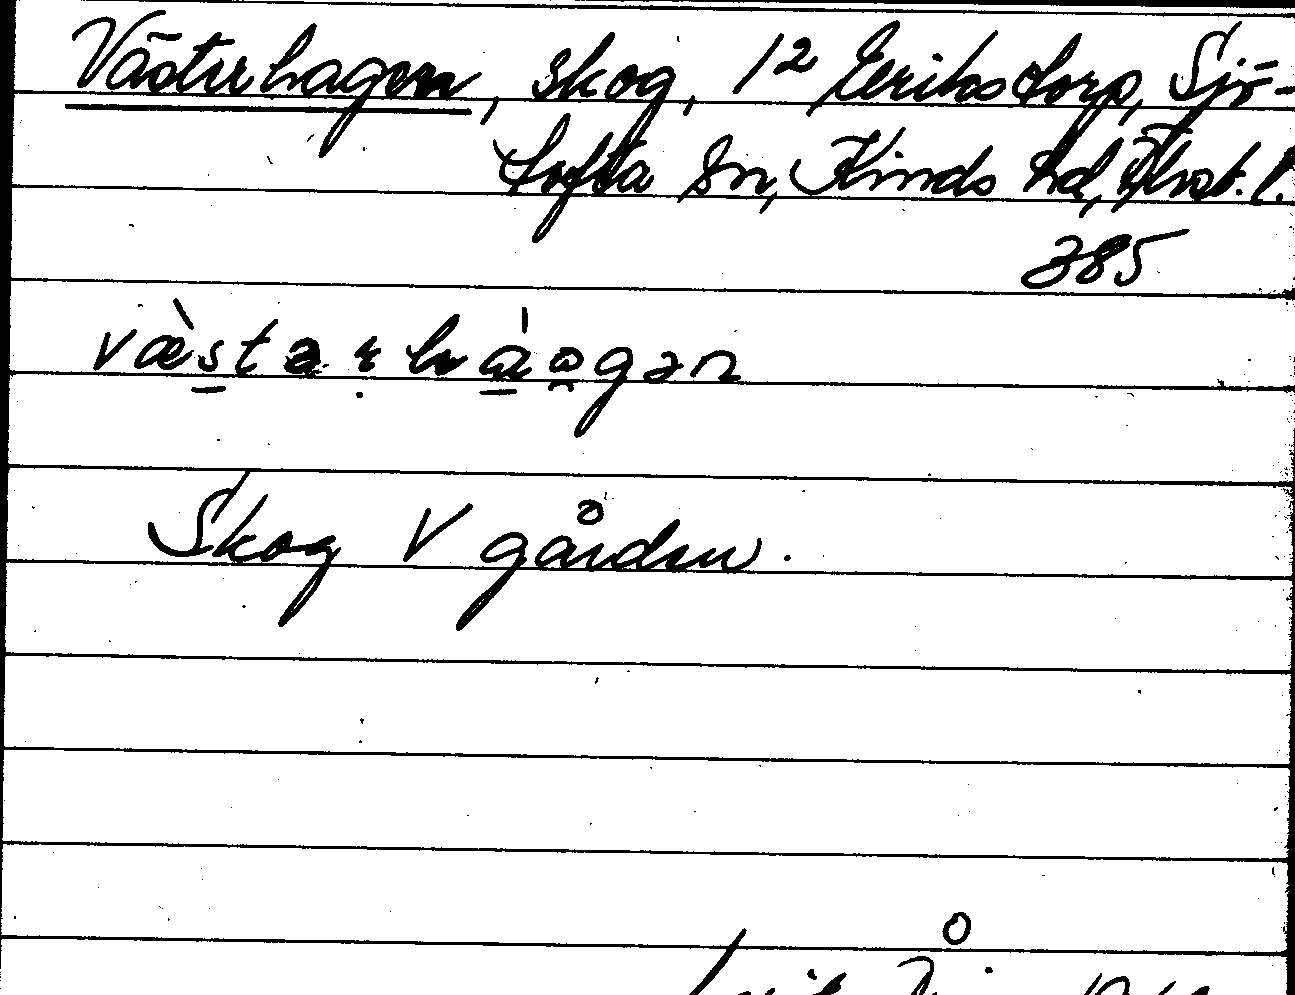 Västerhagen, skog, 1² Eeriks torp, Sjö-
tofta sn, Kinds hd, Älvsb. l.
385
væ̀stərhàɷgən
Skog V gården.